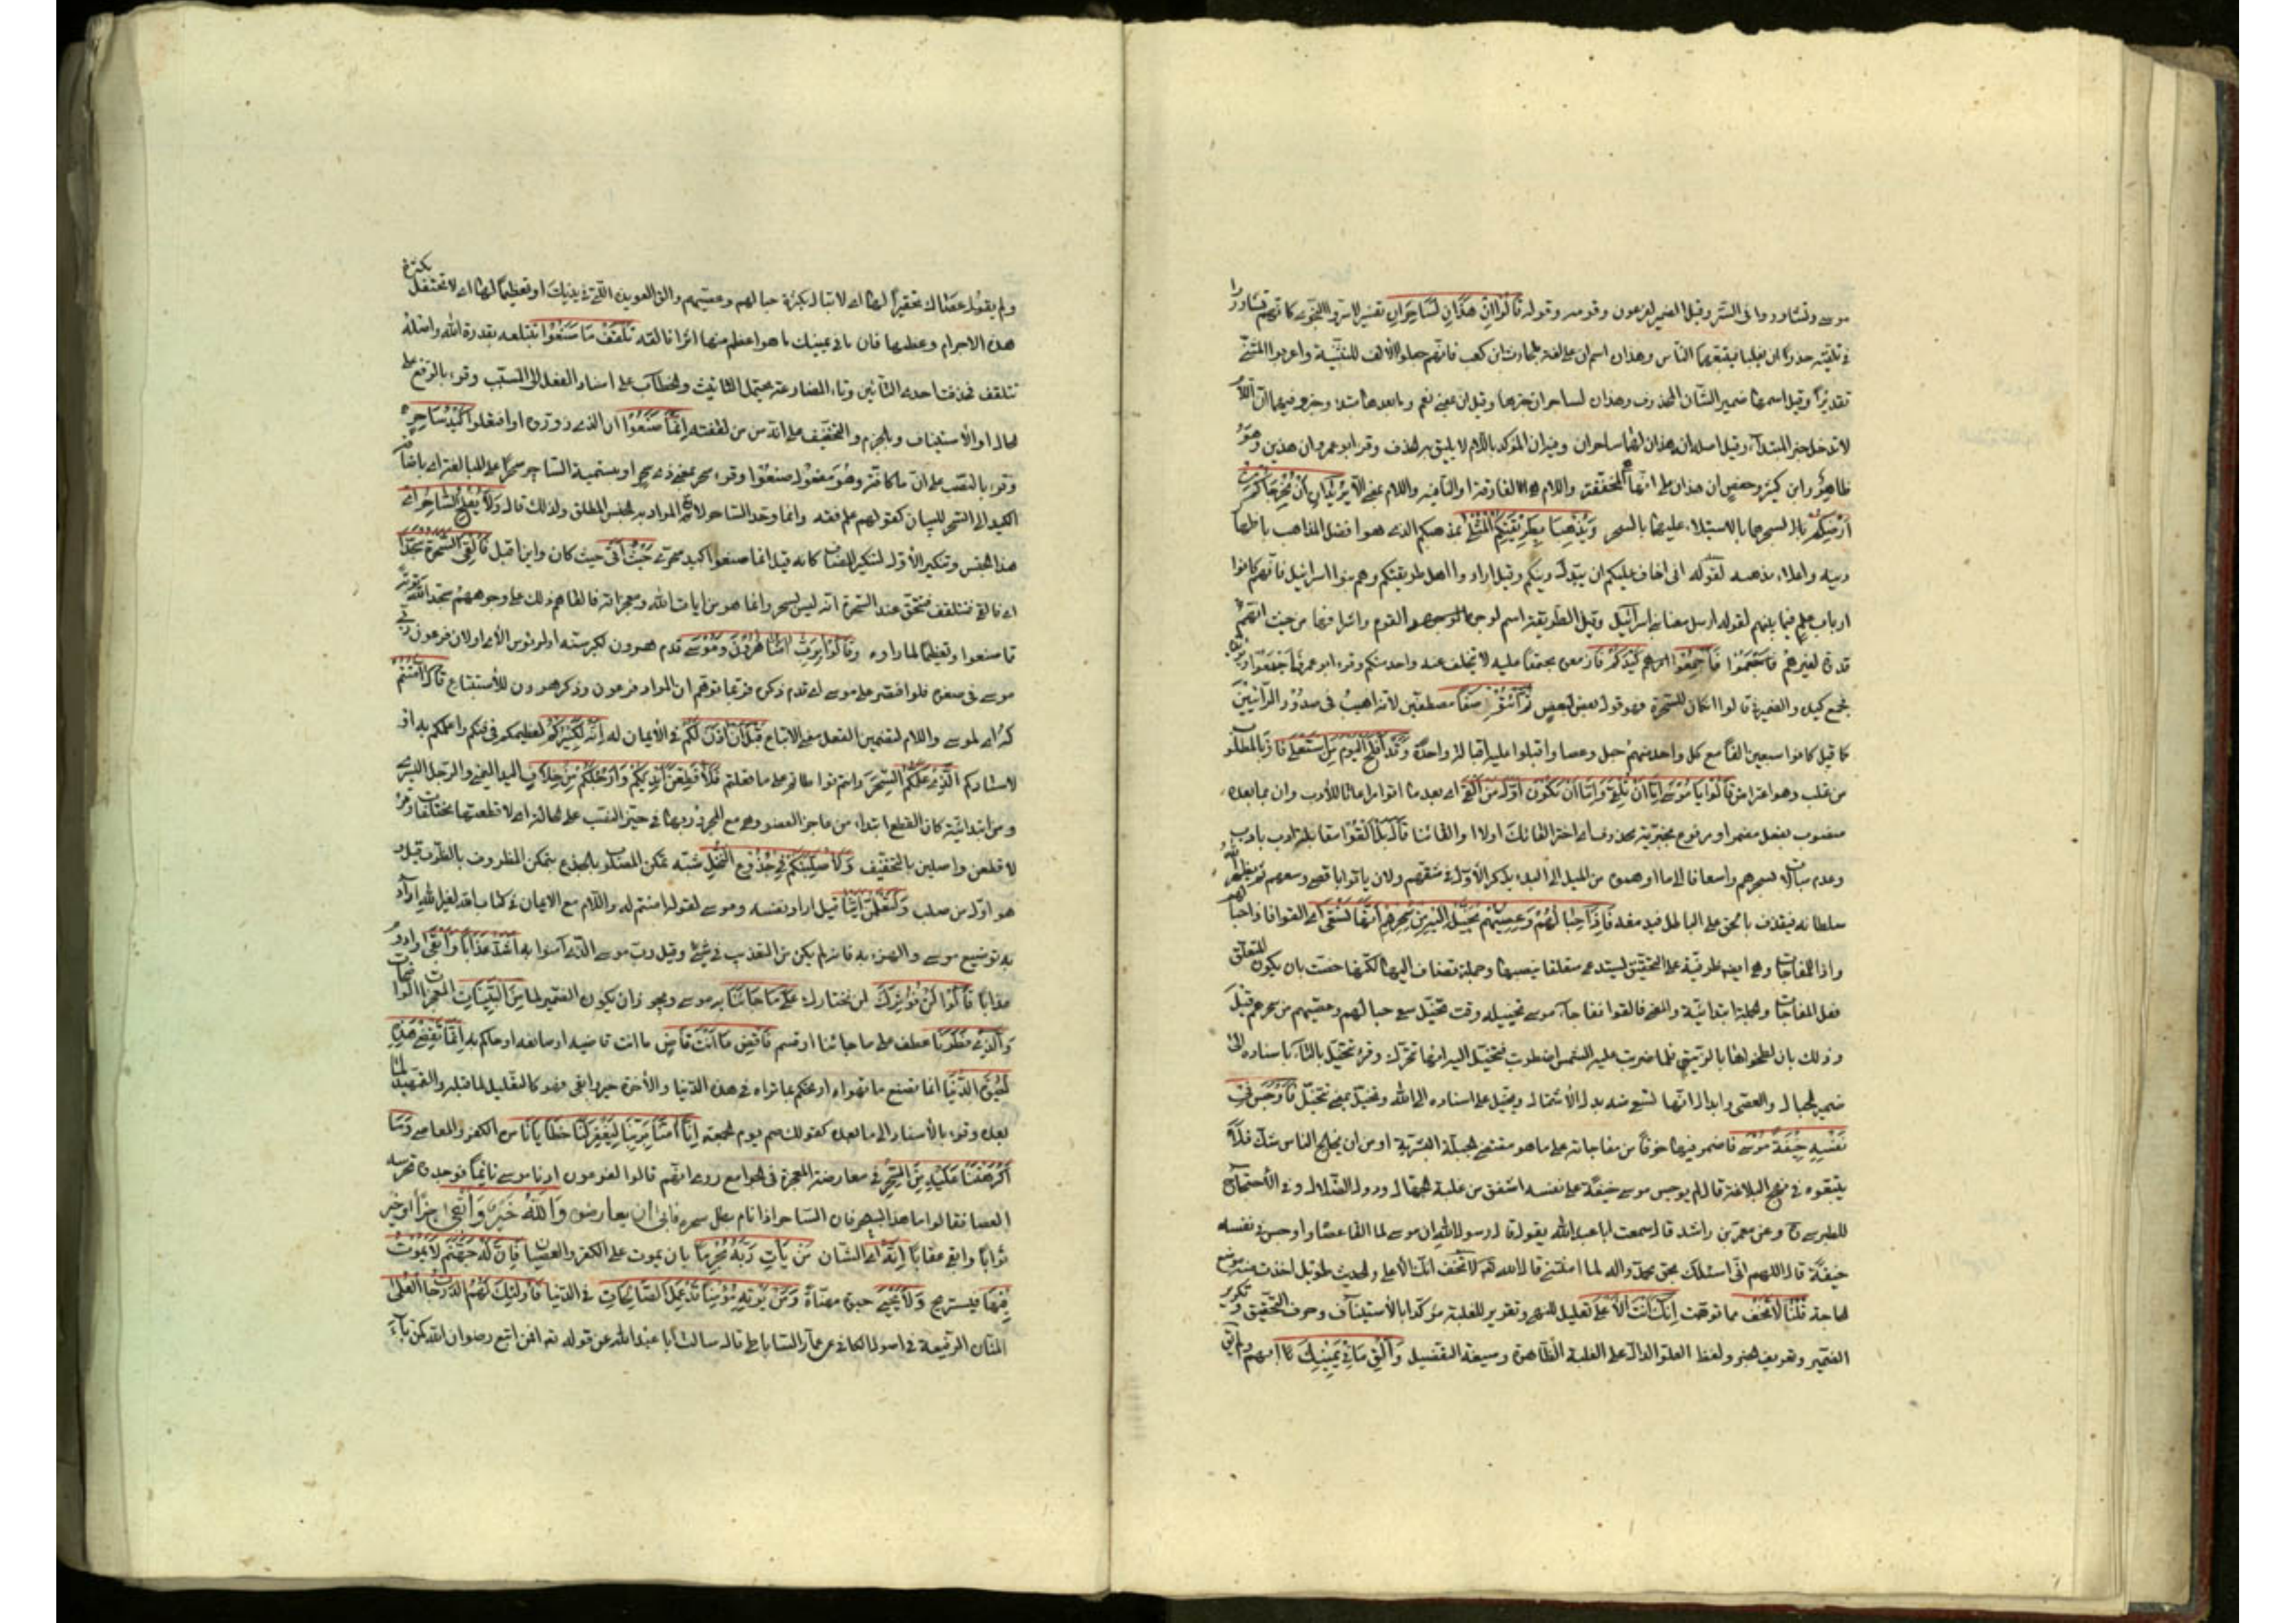 موسى وتشاوروا في السر وقيل الضمير لفرعون وقومه وقوله قَالُوا إِنْ هَذَانِ لَسَاحِرَانِ تفسير لاسروا النجوى كانهم تشاوروا
في تلفيقه حذرا ان يغلبا فيتبعهما الناس وهذان اسم ان على لغة بلحارث ابن كعب فانهم جعلوا الالف للتثنية واعربوا المثنى
تقديرًا وقيل اسمها ضمير الشأن المحذوف وهذان لساحران خبرها وقيل ان بمعنى نعم وما بعدها مبتدا وخبر وفيهما ان اللام
لا تدخل خبر المبتدأ وقيل اصله انه هذان لهما ساحران وفيه ان المؤكد باللام لا يليق به الحذف وقرء ابو عمرو ان هذين وهو
ظاهر وابن كثير وحفص ان هذان على انها المخففة واللام هي الفارقة او النافيه واللام بمعنى الا يُرِيدَانِ أَنْ يُخْرِجَاكُمْ مِنْ
أَرْضِكُمْ بِسِحْرِهِمَا بالاستيلاء عليها بالسحر وَيَذْهَبَا بِطَرِيقَتِكُمُ الْمُثْلَى بمذهبكم الذي هو افضل المذاهب باظهار
دينه واعلاء مذهبه لقوله اني اخاف عليكم ان يبدل دينكم وقيل ارادوا اهل طريقتكم وهم بنوا اسرائيل فانهم كانوا
ارباب علم فيما بينهم لقوله ارسل معنا بني اسرائيل وقيل الطريقة اسم لوجوه القوم واشرافهم من حيث انهم
قدوة لغيرهم فَأَجْمِعُوا كَيْدَكُمْ فازمعوه مجمعا عليه لا يتخلف عنه واحد منكم وقرء ابو عمرو فاجمعوا
فجمع كيده والضمير في قالوا ان كان للسحرة فهو قول بعض لبعض ثُمَّ ائْتُوا صَفًّا مصطفين لانه اهيب في صدور الرائين
قيل كانوا سبعين الفا مع كل واحد منهم حبل وعصا واقبلوا عليه اقبالة واحدة وَقَدْ أَفْلَحَ الْيَوْمَ مَنِ اسْتَعْلَى فاز بالمطلوب
من غلب وهو اعتراض قَالُوا يَا مُوسَى إِمَّا أَنْ تُلْقِيَ وَإِمَّا أَنْ نَكُونَ أَوَّلَ مَنْ أَلْقَى اي بعد ما اتوا مراعاتا للأدب وان بما بعده
منصوب بفعل مضمر او مرفوع بخبرية محذوف اي اختر القائك اولا او القائنا قَالَ بَلْ أَلْقُوا مقابلة ادب بادب
وعدم مبالاة بسحرهم واسعافا الى ما اوهموه من الميل الى البدء بذكر الأول في شقهم ولان ياتوا باقصى وسعهم ثم يظهر الله
سلطانه فيقذف بالحق على الباطل فيدمغه فَإِذَا حِبَالُهُمْ وَعِصِيُّهُمْ يُخَيَّلُ إِلَيْهِ مِنْ سِحْرِهِمْ أَنَّهَا تَسْعَى اي فالقوا فاذا حبالهم
واذا للمفاجاة وهي ايضا ظرفية على التحقيق يستدعي متعلقا ينصبها وجملة تضاف اليها لكنها خصت بان يكون المتعلق
فعل المفاجاة والجملة ابتدائية والمعنى فالقوا ففاجأ موسى تخييله وقت تخيل سعي حبالهم وعصيهم من سحرهم قيل
وذلك بان لطخوها بالزيبق فلما ضربت عليه الشمس اضطربت فتخيل اليه انها تحرك وقرء تخيل بالتاء باسناده الى
ضمير الحبال والعصي وابدال انها تسعى منه بدل الاشتمال ويخيل على اسناده الى الله وتخيل بمعنى تتخيل فَأَوْجَسَ فِي
نَفْسِهِ خِيفَةً مُوسَى فاضمر فيها خوفًا من مفاجاته على ما هو مقتضى الجبلة البشرية او من ان يخالج الناس شك فلا
يتبعوه في نهج البلاغة قال لم يوجس موسى خيفة على نفسه اشفق من غلبة الجهال ودول الضلال وفي الأحتجاج
للطبرسي وعن معمر بن راشد قال سمعت ابا عبد الله يقول قال رسول الله ان موسى لما القا عصاه واوجس في نفسه
خيفة قال اللهم اني اسئلك بحق محمد واله لما امنتني قال الله لا تخف انك انت الأعلى والحديث طويل اخذت منه موضع
الحاجة قُلْنَا لَا تَخَفْ مما توهمت إِنَّكَ أَنْتَ الْأَعْلَى تعليل للنهي وتقرير للغلبة مؤكدا بالأستيناف وحرف التحقيق وتكرير
الضمير وتعريف الخبر ولفظ العلو الدال على الغلبة الظاهرة وصيغة التفضيل وَأَلْقِ مَا فِي يَمِينِكَ ابهمه
ولم يقول عصاك تحقيرًا لها اي لا تبال بكثرة حبالهم وعصيهم والق العويد التي في يدك او تعظيما لها اي لا تحتفل بكثرة
هذه الاجرام وعظمها فان ما في يمينك ما هو اعظم منها اثرا فالقه تَلْقَفْ مَا صَنَعُوا تبتلعه بقدرة الله واصله
تتلقف فحذفت احدى التائين وتاء المضارعة يحتمل التانيث والخطاب على اسناد الفعل الى السبب وقرء بالرفع على
الحال او الأستيناف وبالجزم والتخفيف على انه من لقفته إِنَّمَا صَنَعُوا ان الذي زوروه او افتعلوا كَيْدُ سَاحِرٍ
وقرء بالنصب على ان ما كافة وهو مفعول صنعوا وقرء سحر بمعنى ذي سحر او بتسمية الساحر سحرًا على المبالغة او باضافة
الكيد الى السحر للبيان كقولهم علم فقه وانما وحد الساحر لان المراد به الجنس المطلق ولذلك قال وَلَا يُفْلِحُ السَّاحِرُ اي
هذا الجنس وتنكير الأول لتنكير المضاف كانه قيل انما صنعوا كيد سحري حَيْثُ أَتَى حيث كان واين اقبل فَأُلْقِيَ السَّحَرَةُ سُجَّدًا
اي فالقى فتلقف فتحقق عند السحرة انه ليس بسحر وانما هو من ايات الله ومعجزاته فالقاهم ذلك على وجوههم سجدا لله توبة
عما صنعوا وتعظيما لما راوه قَالُوا آمَنَّا بِرَبِّ هَارُونَ وَمُوسَى قدم هرون لكبر سنه او لرئوس الأي او لان فرعون ربى
موسى في صغره فلو اقتصر على موسى او قدم ذكره فربما توهم ان المراد فرعون وذكر هرون للأستتباع قَالَ آمَنْتُمْ
لَهُ اي لموسى واللام لتضمين الفعل معنى الاتباع قَبْلَ أَنْ آذَنَ لَكُمْ في الأيمان له إِنَّهُ لَكَبِيرُكُمُ لعظيمكم في فنكم واعلمكم به او
لاستادكم الَّذِي عَلَّمَكُمُ السِّحْرَ وانتم تواطاتم على ما فعلتم فَلَأُقَطِّعَنَّ أَيْدِيَكُمْ وَأَرْجُلَكُمْ مِنْ خِلَافٍ اليد اليمنى والرجل اليسرى
ومن ابتدائية كان القطع ابتداء من مخالفة العضو وهي مع المجرور بها في حيز النصب على الحال اي لاقطعنها مختلفات وقرء
لاقطعن ولاصلبن بالتخفيف وَلَأُصَلِّبَنَّكُمْ فِي جُذُوعِ النَّخْلِ شبه تمكن المصلوب بالجذع بتمكن المظروف بالظرف قيل
هو اول من صلب وَلَتَعْلَمُنَّ أَيُّنَا قيل اراد نفسه وموسى لقوله امنتم له واللام مع الايمان في كتاب الله لغير الله اراد
به توضيع موسى والهزء به فانه لم يكن من التعذيب في شيء وقيل رب موسى الذي آمنوا به أَشَدُّ عَذَابًا وَأَبْقَى وادوم
عذابا قَالُوا لَنْ نُؤْثِرَكَ لن نختارك عَلَى مَا جَاءَنَا به موسى ويجوز ان يكون الضمير لما مِنَ الْبَيِّنَاتِ المعجزات الواضحات
وَالَّذِي فَطَرَنَا عطف على ما جائنا او قسم فَاقْضِ مَا أَنْتَ قَاضٍ ما انت قاضيه او صانعه او حاكم به إِنَّمَا تَقْضِي هَذِهِ
الْحَيَاةَ الدُّنْيَا انما تصنع ما تهواه او تحكم بما تراه في هذه الدنيا والأخرة خير وابقى وهو كالتعليل لما قبله والتمهيد لما
بعده وقرء بالأسناد الى ما بعده كقولك صيم يوم الجمعة إِنَّا آمَنَّا بِرَبِّنَا لِيَغْفِرَ لَنَا خَطَايَانَا من الكفر والمعاصي وَمَا
أَكْرَهْتَنَا عَلَيْهِ مِنَ السِّحْرِ في معارضة المعجزة في الجوامع روي انهم قالوا لفرعون ارنا موسى نائما فوجدوه تحرسه
العصا فقالوا ما هذا بسحر فان الساحر اذا نام بطل سحره فابى ان يعارضوه وَاللَّهُ خَيْرٌ وَأَبْقَى جزاء او خير
ثوابا وابقى عقابا إِنَّهُ اي الشان مَنْ يَأْتِ رَبَّهُ مُجْرِمًا بان يموت على الكفر والعصيان فَإِنَّ لَهُ جَهَنَّمَ لَا يَمُوتُ
فِيهَا فيستريح وَلَا يَحْيَى حيوة مهناة وَمَنْ يَأْتِهِ مُؤْمِنًا قَدْ عَمِلَ الصَّالِحَاتِ في الدنيا فَأُولَئِكَ لَهُمُ الدَّرَجَاتُ الْعُلَى
المنازل الرفيعة في اصول الكافي عن عمار الساباطي قال سالت ابا عبد الله عن قوله افمن اتبع رضوان الله كمن باء